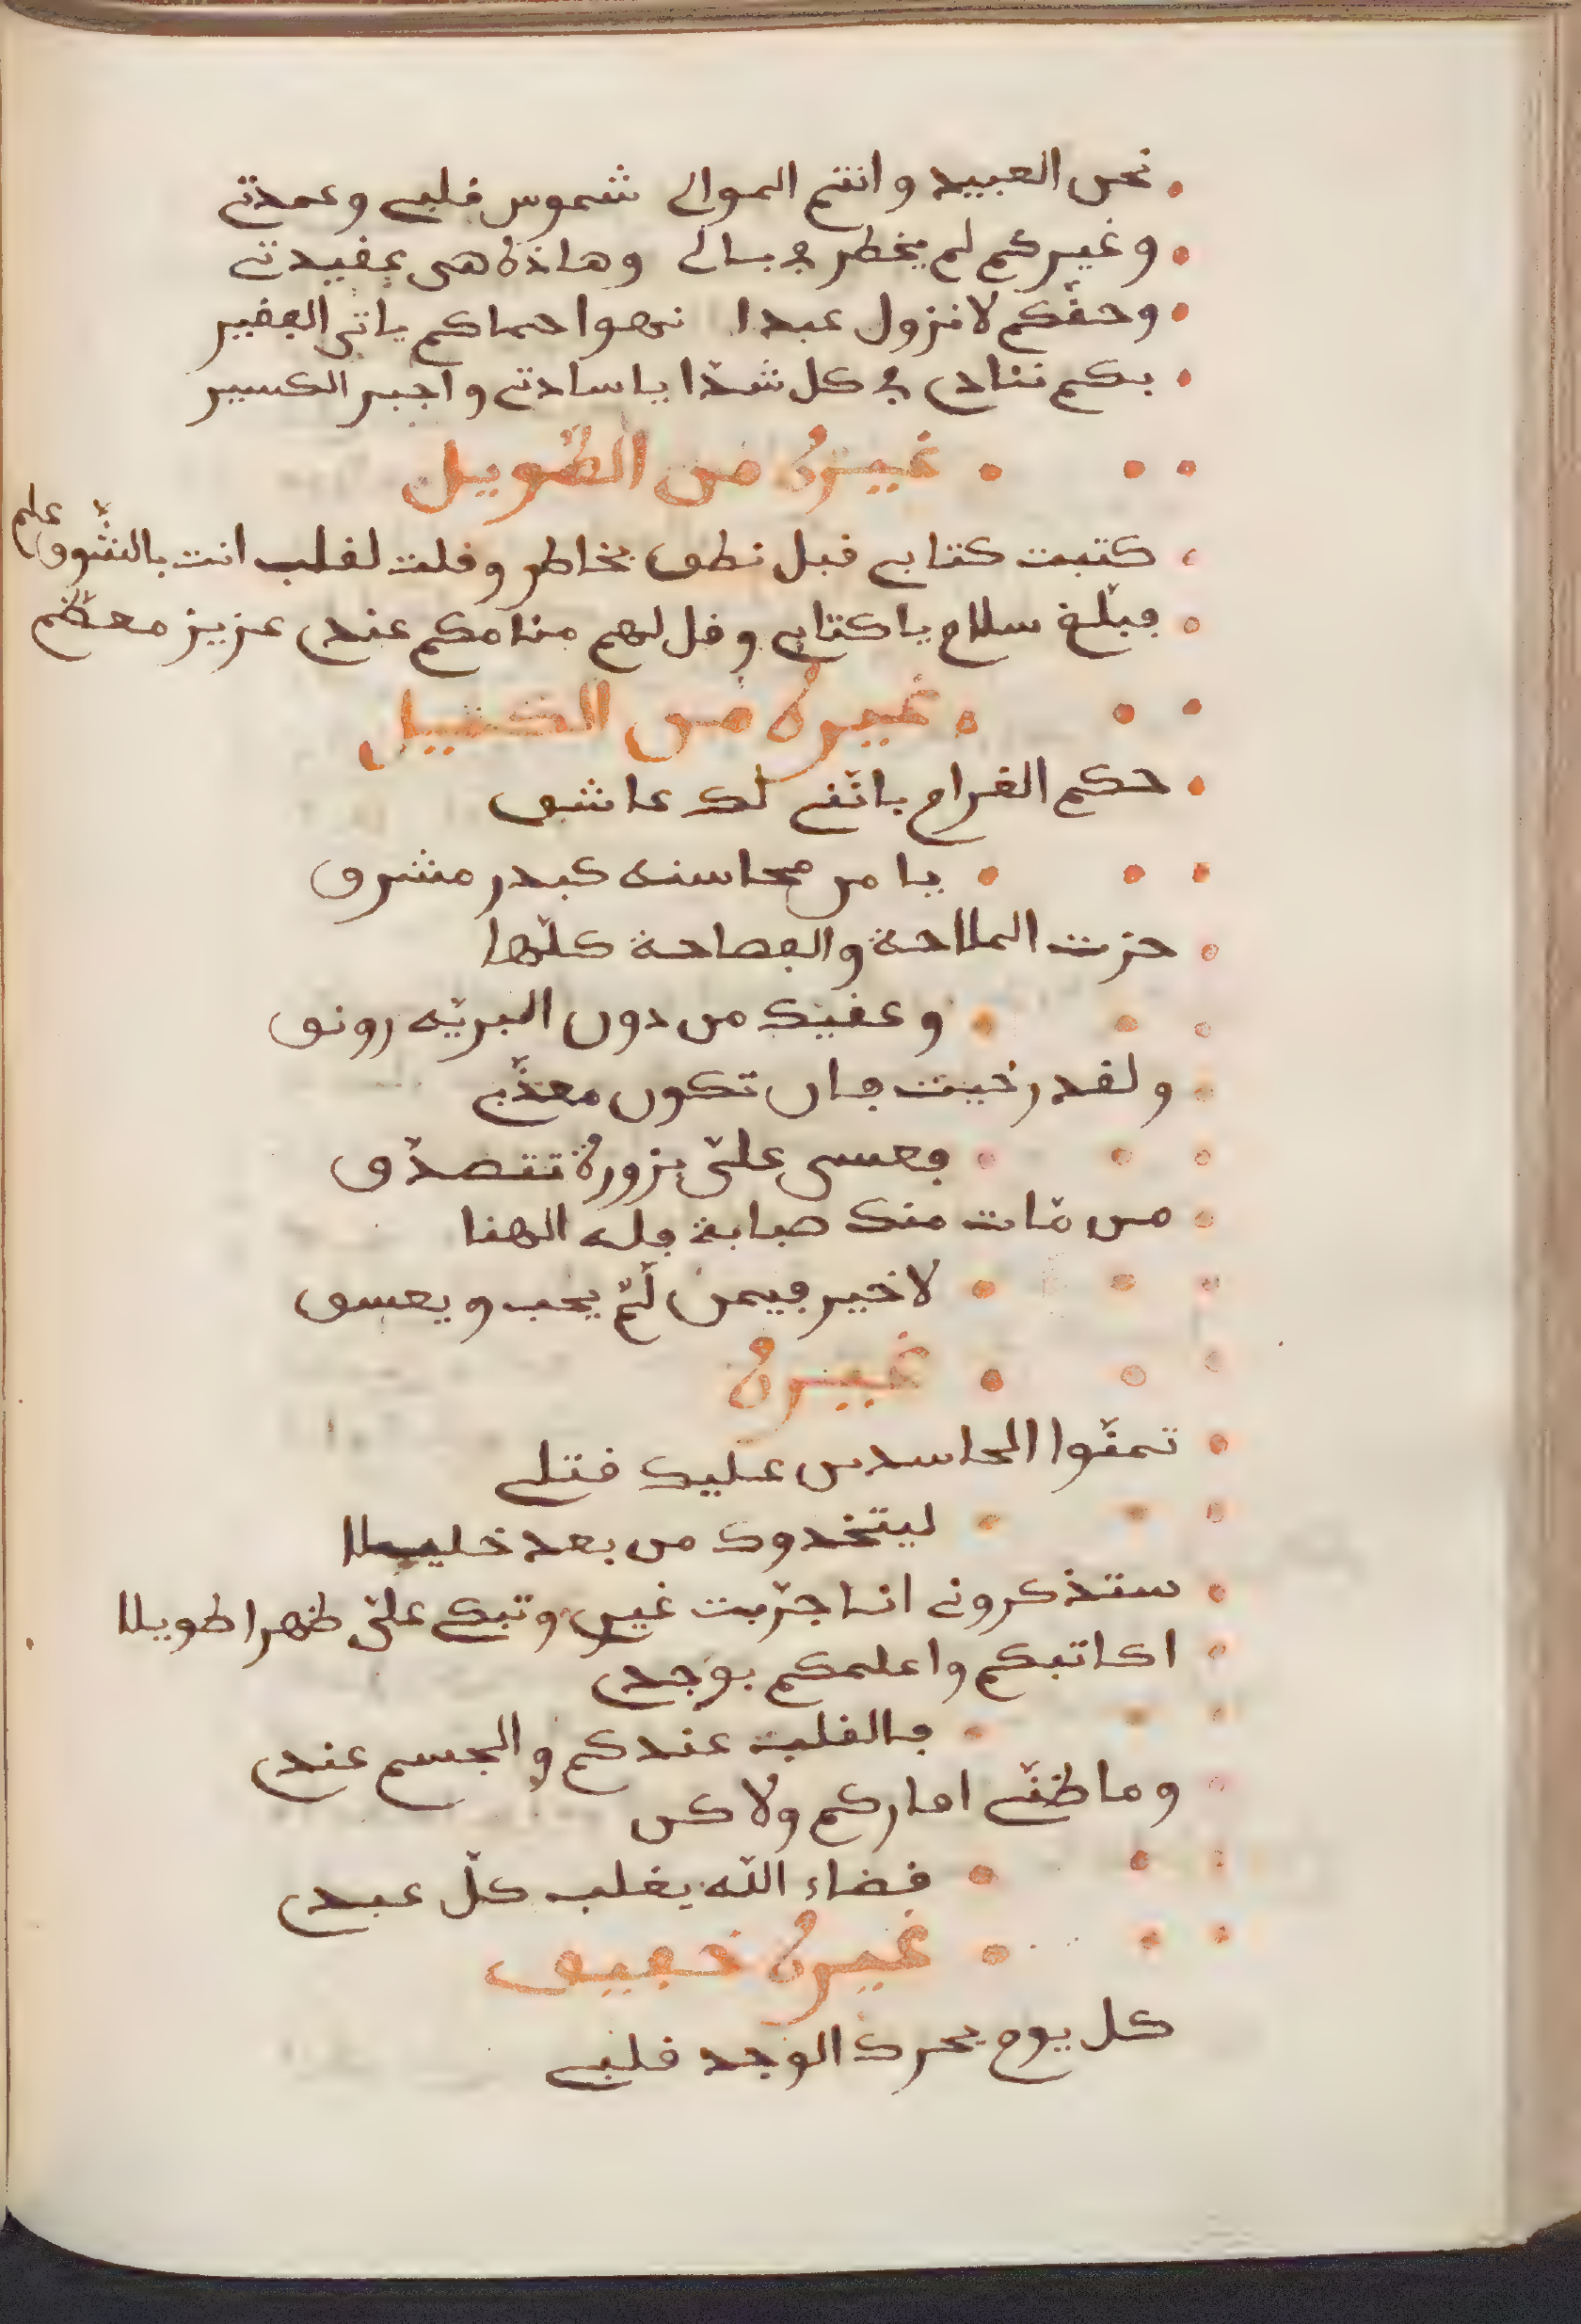 نحن العبيد وانتم الموالي شموس قلبي وعمدتي
وغيركم لم يخطر في بالي وهاذه هي عقيدتي
وحقّكم لا نزول عبدا نهوا حماكم ياتي الفقير
بكم ننادي في كل شدّا يا سادتي واجبر الكسير
غيره من الطويل
كتبت كتابي قبل نطق بخاطر وقلت لقلب انت بالشّوق علم
فبلّغ سلام يا كتابي وقل لهم منامكم عندي عزيز معظّم
غيره من
حكم الغرام بانّني لك عاشق
يا من محاسنه كبدر مشرق
حزت الملاحة والفصاحة كلّها
وعفيك من دون البريّه رونق
ولقد رضيت فان تكون معذّبي
فعسى عليّ بزورة تتصدّق
من مّات منك صبابة فله الهنا
لا خير فيمن لّم يحب ويعسق
غيره
تمنّوا الحاسدين عليك قتلي
ليتخدوك من بعد خليلا
ستذكروني اذا جرّبت غيري وتبك عليّ ظهرا طويلا
اكاتبكم واعلمكم بوجدي
فالقلب عندكم والجسم عندي
وما ظنّي افارركم ولاكن
قضاء اللّه يغلب كلّ عبدي
غيره خفيف
كل يوم يحرك الوجد قلبي